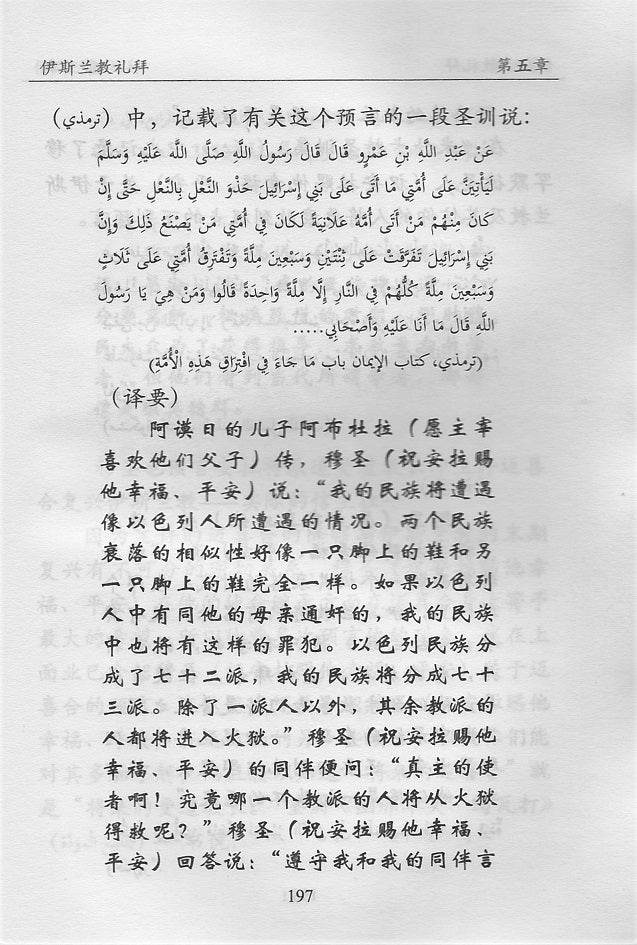 伊斯兰教礼拜 第五章
(ترمذي) 中，记载了有关这个预言的一段圣训说：
عَنْ عَبْدِ اللَّهِ بْنِ عَمْرٍو قَالَ قَالَ رَسُولُ اللَّهِ صَلَّى اللَّه عَلَيْهِ وَسَلَّمَ
لَيَأْتِيَنَّ عَلَى أُمَّتِي مَا أَتَى عَلَى بَنِي إِسْرَائِيلَ حَذْوَ النَّعْلِ بِالنَّعْلِ حَتَّى إِنْ
كَانَ مِنْهُمْ مَنْ أَتَى أُمَّهُ عَلَانِيَةً لَكَانَ فِي أُمَّتِي مَنْ يَصْنَعُ ذَلِكَ وَإِنَّ
بَنِي إِسْرَائِيلَ تَفَرَّقَتْ عَلَى ثِنْتَيْنِ وَسَبْعِينَ مِلَّةً وَتَفْتَرِقُ أُمَّتِي عَلَى ثَلَاثٍ
وَسَبْعِينَ مِلَّةً كُلُّهُمْ فِي النَّارِ إِلَّا مِلَّةً وَاحِدَةً قَالُوا وَمَنْ هِيَ يَا رَسُولَ
اللَّهِ قَالَ مَا أَنَا عَلَيْهِ وَأَصْحَابِي.....
(ترمذي، كتاب الإيمان باب مَا جَاءَ فِي افْتِرَاقِ هَذِهِ الْأُمَّةِ)
（译要）
阿谟日的儿子阿布杜拉（愿主宰
喜欢他们父子）传，穆圣（祝安拉赐
他幸福、平安）说：“我的民族将遭遇
像以色列人所遭遇的情况。两个民族
衰落的相似性好像一只脚上的鞋和另
一只脚上的鞋完全一样。如果以色列
人中有同他的母亲通奸的，我的民族
中也将有这样的罪犯。以色列民族分
成了七十二派，我的民族将分成七十
三派。除了一派人以外，其余教派的
人都将进入火狱。”穆圣（祝安拉赐他
幸福、平安）的同伴便问：“真主的使
者啊！究竟哪一个教派的人将从火狱
得救呢？”穆圣（祝安拉赐他幸福、
平安）回答说：“遵守我和我的同伴言
197